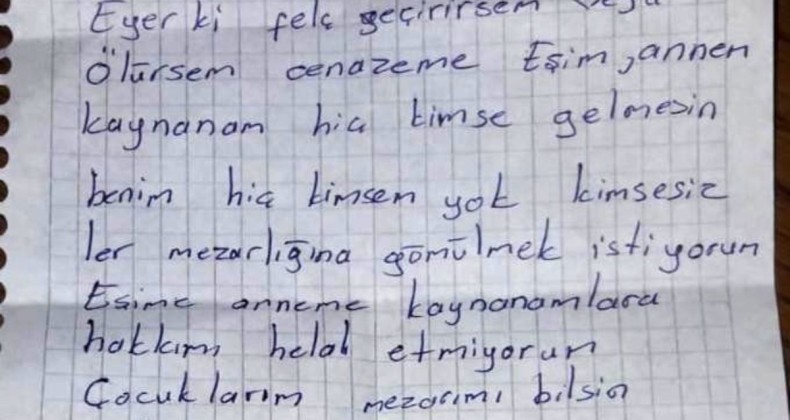 Eyer ki felç geçirirsem veya
Ölürsem cenazeme Eşim, annem
kaynanam hiç kimse gelmesin
benim hiç kimsem yok kimsesiz
ler mezarlığına gömülmek istiyorum
Eşime anneme kaynanamlara
hakkımı helal etmiyorum
Çocuklarım mezarımı bilsin